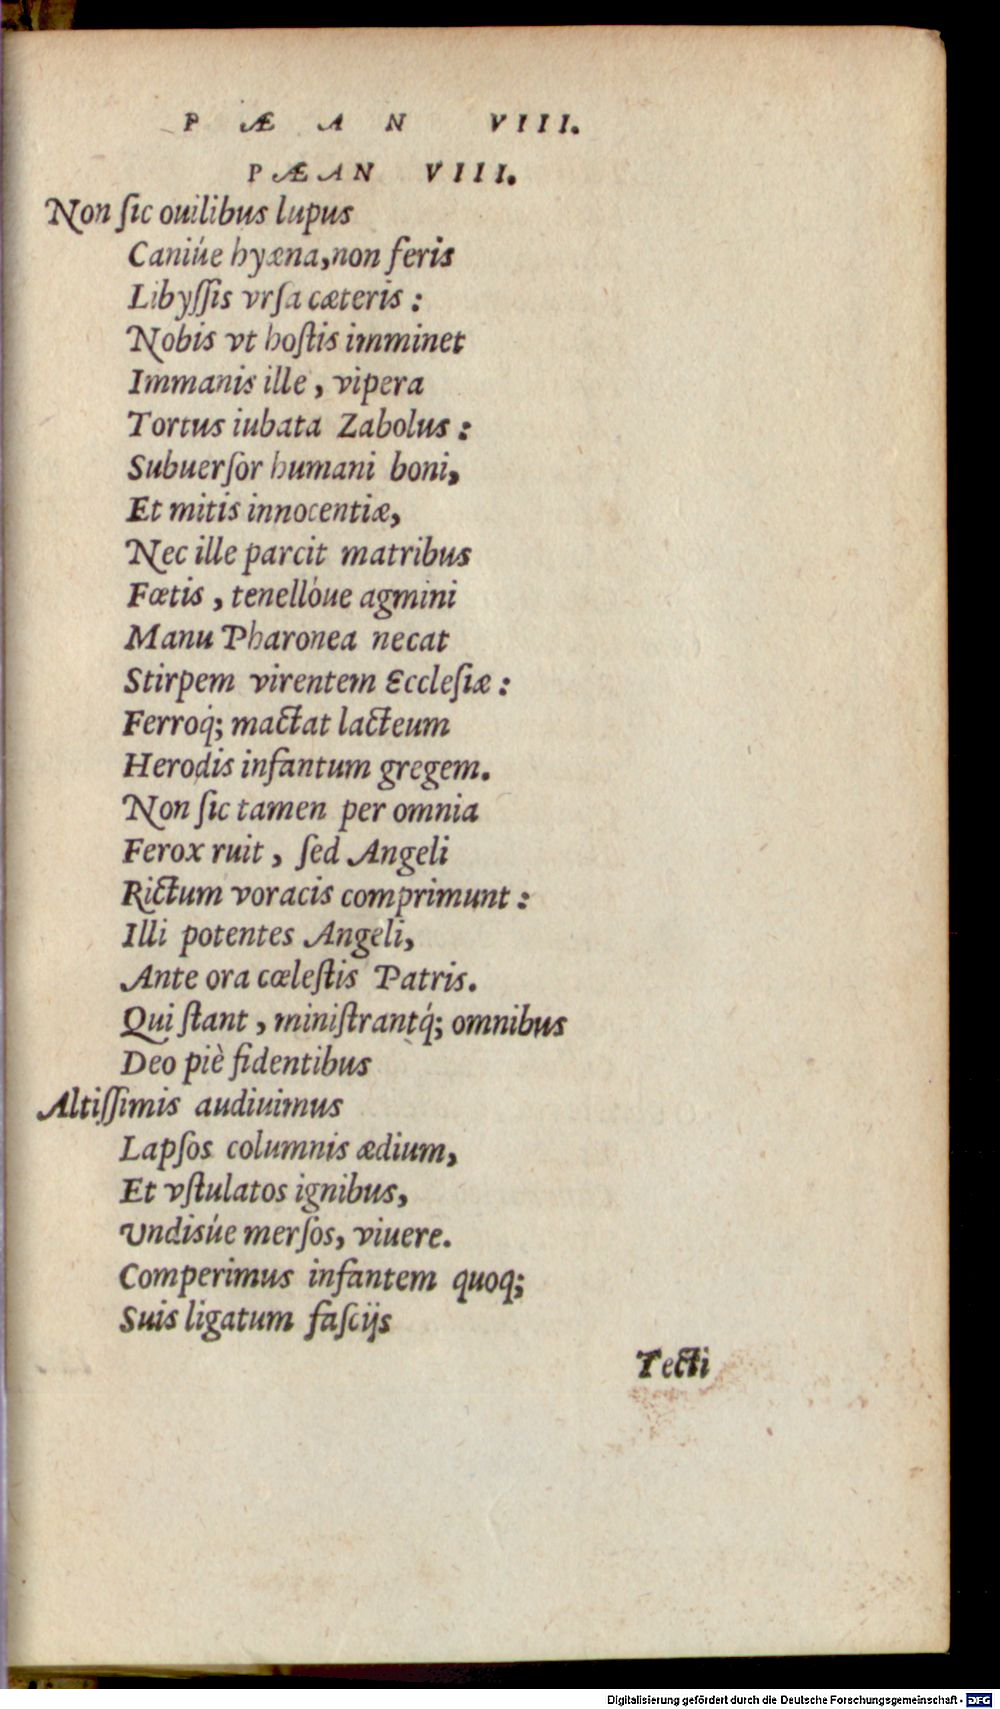 P Æ A N VIII.
PÆAN VIII.
Non ſic ouilibus lupus
Caniúe hyæna,non feris
Libyſſis vrſa cæteris :
Nobis vt hoſtis imminet
Immanis ille , vipera
Tortus iubata Zabolus :
Subuerſor humani boni,
Et mitis innocentiæ,
Nec ille parcit matribus
Fœtis , tenellóue agmini
Manu Pharonea necat
Stirpem virentem Eccleſiæ :
Ferroq́; mactat lacteum
Herodis infantum gregem.
Non ſic tamen per omnia
Ferox ruit , ſed Angeli
Rictum voracis comprimunt :
Illi potentes Angeli,
Ante ora cœleſtis Patris.
Qui ſtant , miniſtrantq́; omnibus
Deo piè fidentibus
Altiſſimis audiuimus
Lapſos columnis ædium,
Et vſtulatos ignibus,
Vndisúe merſos, viuere.
Comperimus infantem quoq;
Suis ligatum faſcijs
Tecti
Digitalisierung gefördert durch die Deutsche Forschungsgemeinschaft - DFG